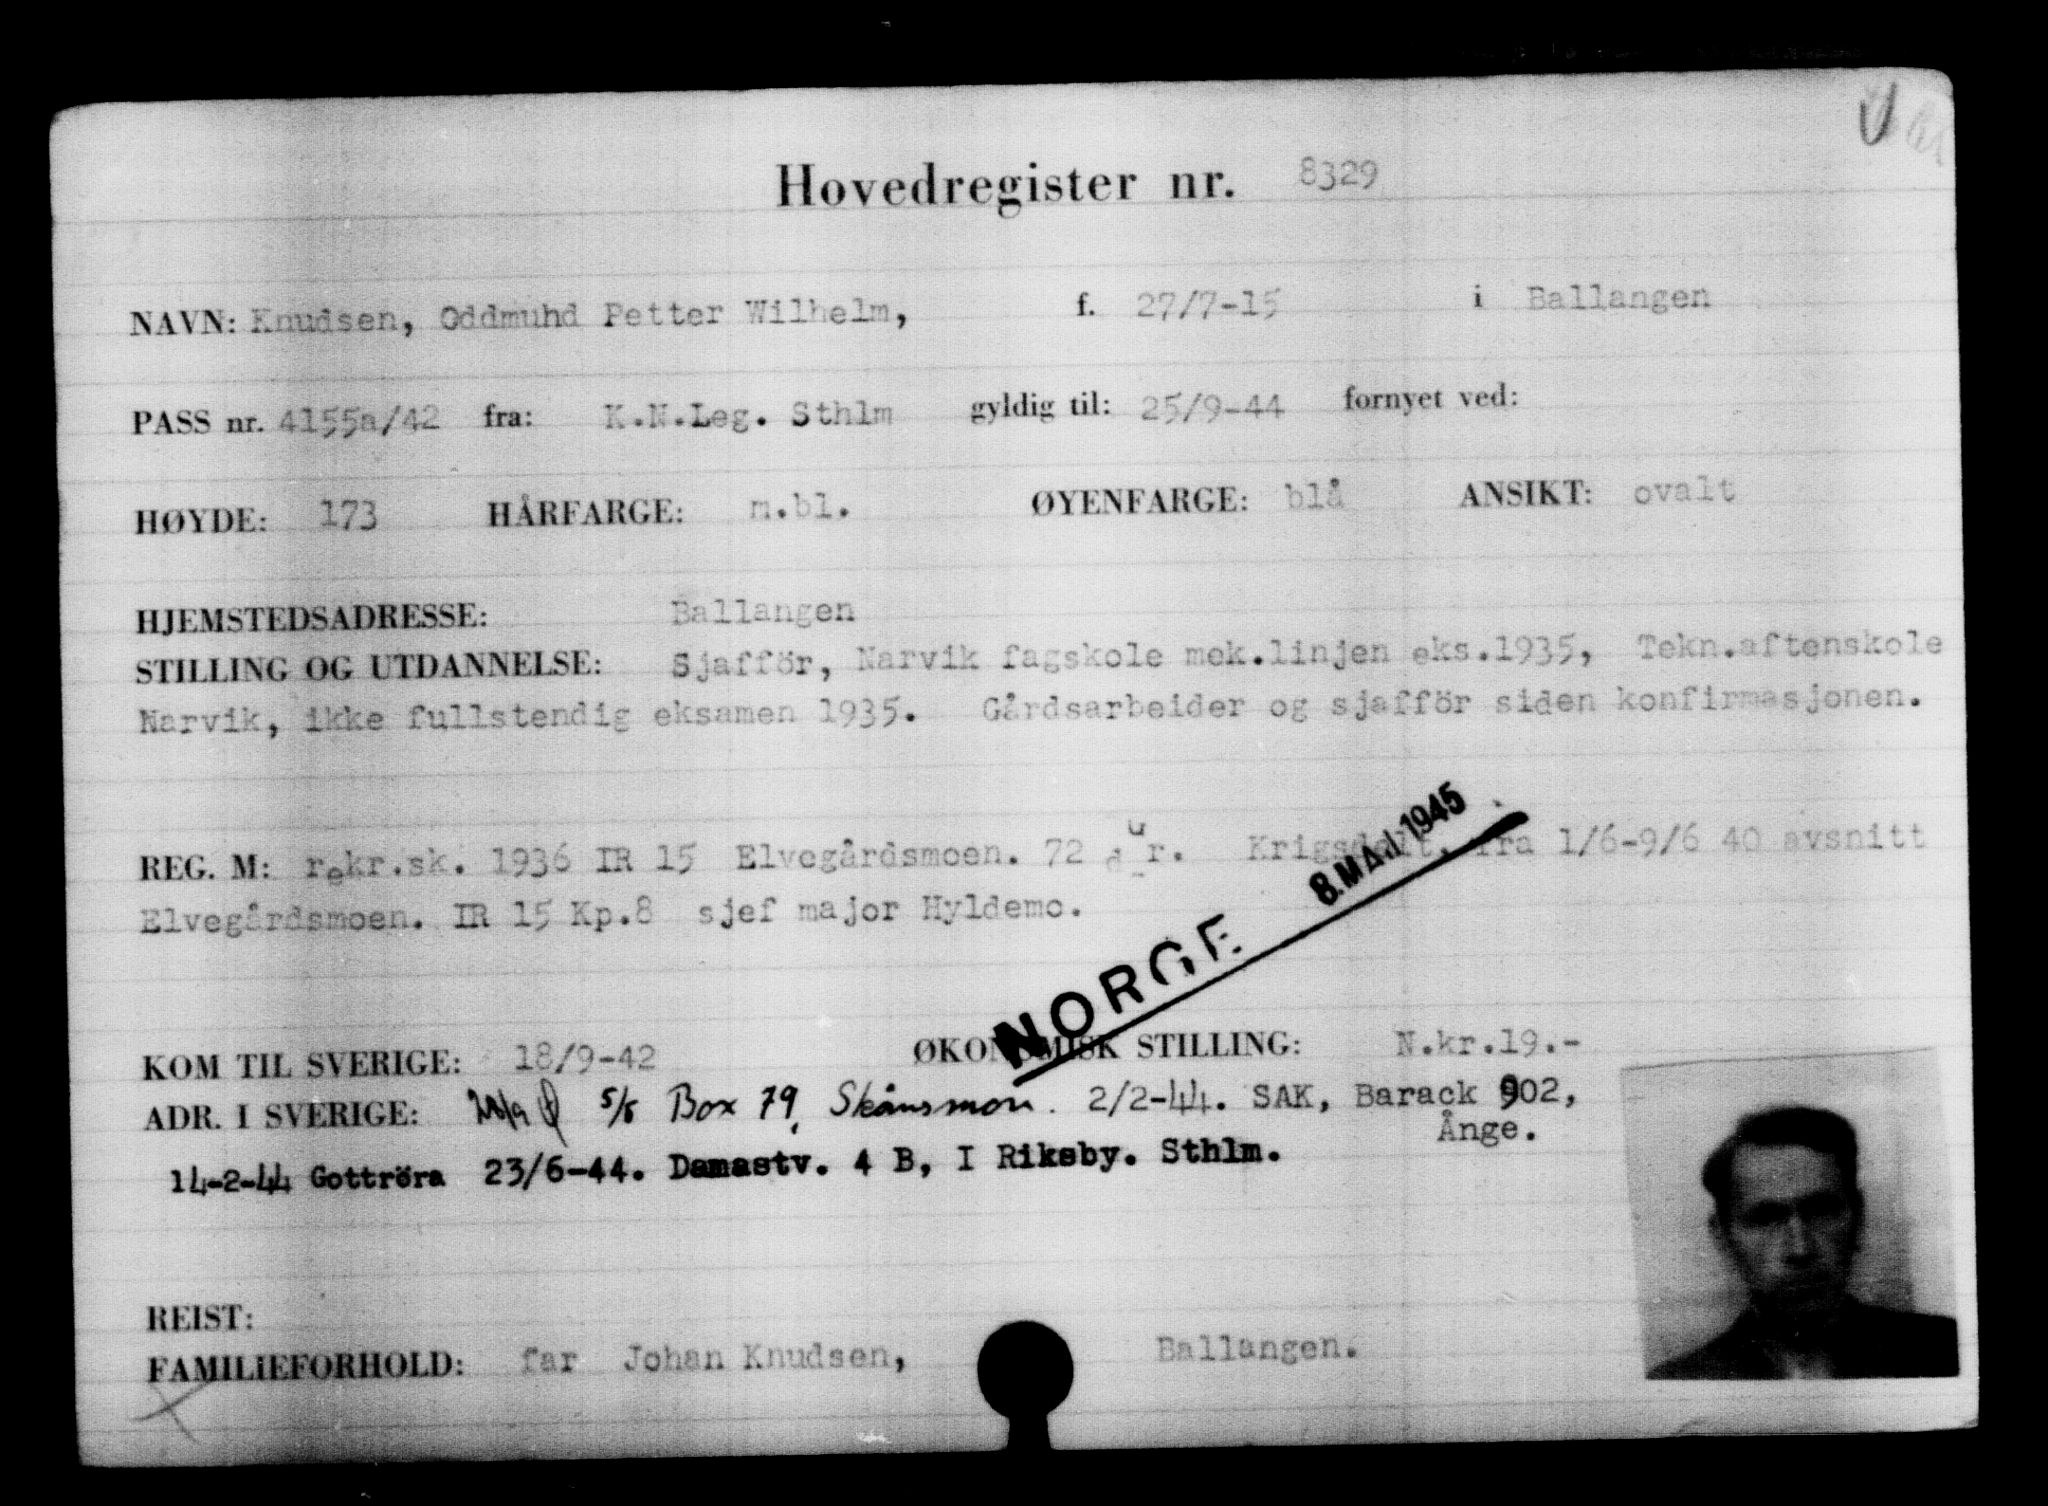 Hovedregister nr. 8329
NAVN: Knudsen, Oddmuhd Petter Wilhelm, f. 27/7-15 i Ballangen
PASS nr. 4155a/42 fra: K.N.Leg. Sthlm gyldig til: 25/9-44 fornyet ved:
HØYDE: 173 HÅRFARGE: m.bl. ØYENFARGE: blå ANSIKT: ovalt
HJEMSTEDSADRESSE: Ballangen
STILLING OG UTDANNELSE: Sjafför, Narvik fagskole mek.linjen eks.1935, Tekn.aftenskole
Narvik, ikke fullstendig eksamen 1935. Gårdsarbeider og sjafför siden konfirmasjonen.
REG. M: rekr.sk. 1936 IR 15 Elvegårdsmoen. 72 d ur. Krigsdelt. fra 1/6-9/6 40 avsnitt
Elvegårdsmoen. IR 15 Kp.8 sjef major Hyldemo.
NORGE 8. MAI 1945
KOM TIL SVERIGE: 18/9-42 ØKONOMISK STILLING: N.kr.19.-
ADR. I SVERIGE: 5/5 Box 79, Skånsmon. 2/2-44. SAK, Barack 902,
Ånge.
14-2-44 Gottröra 23/6-44. Damastv. 4 B, I Riksby. Sthlm.
REIST:
FAMILIEFORHOLD: far Johan Knudsen, Ballangen.